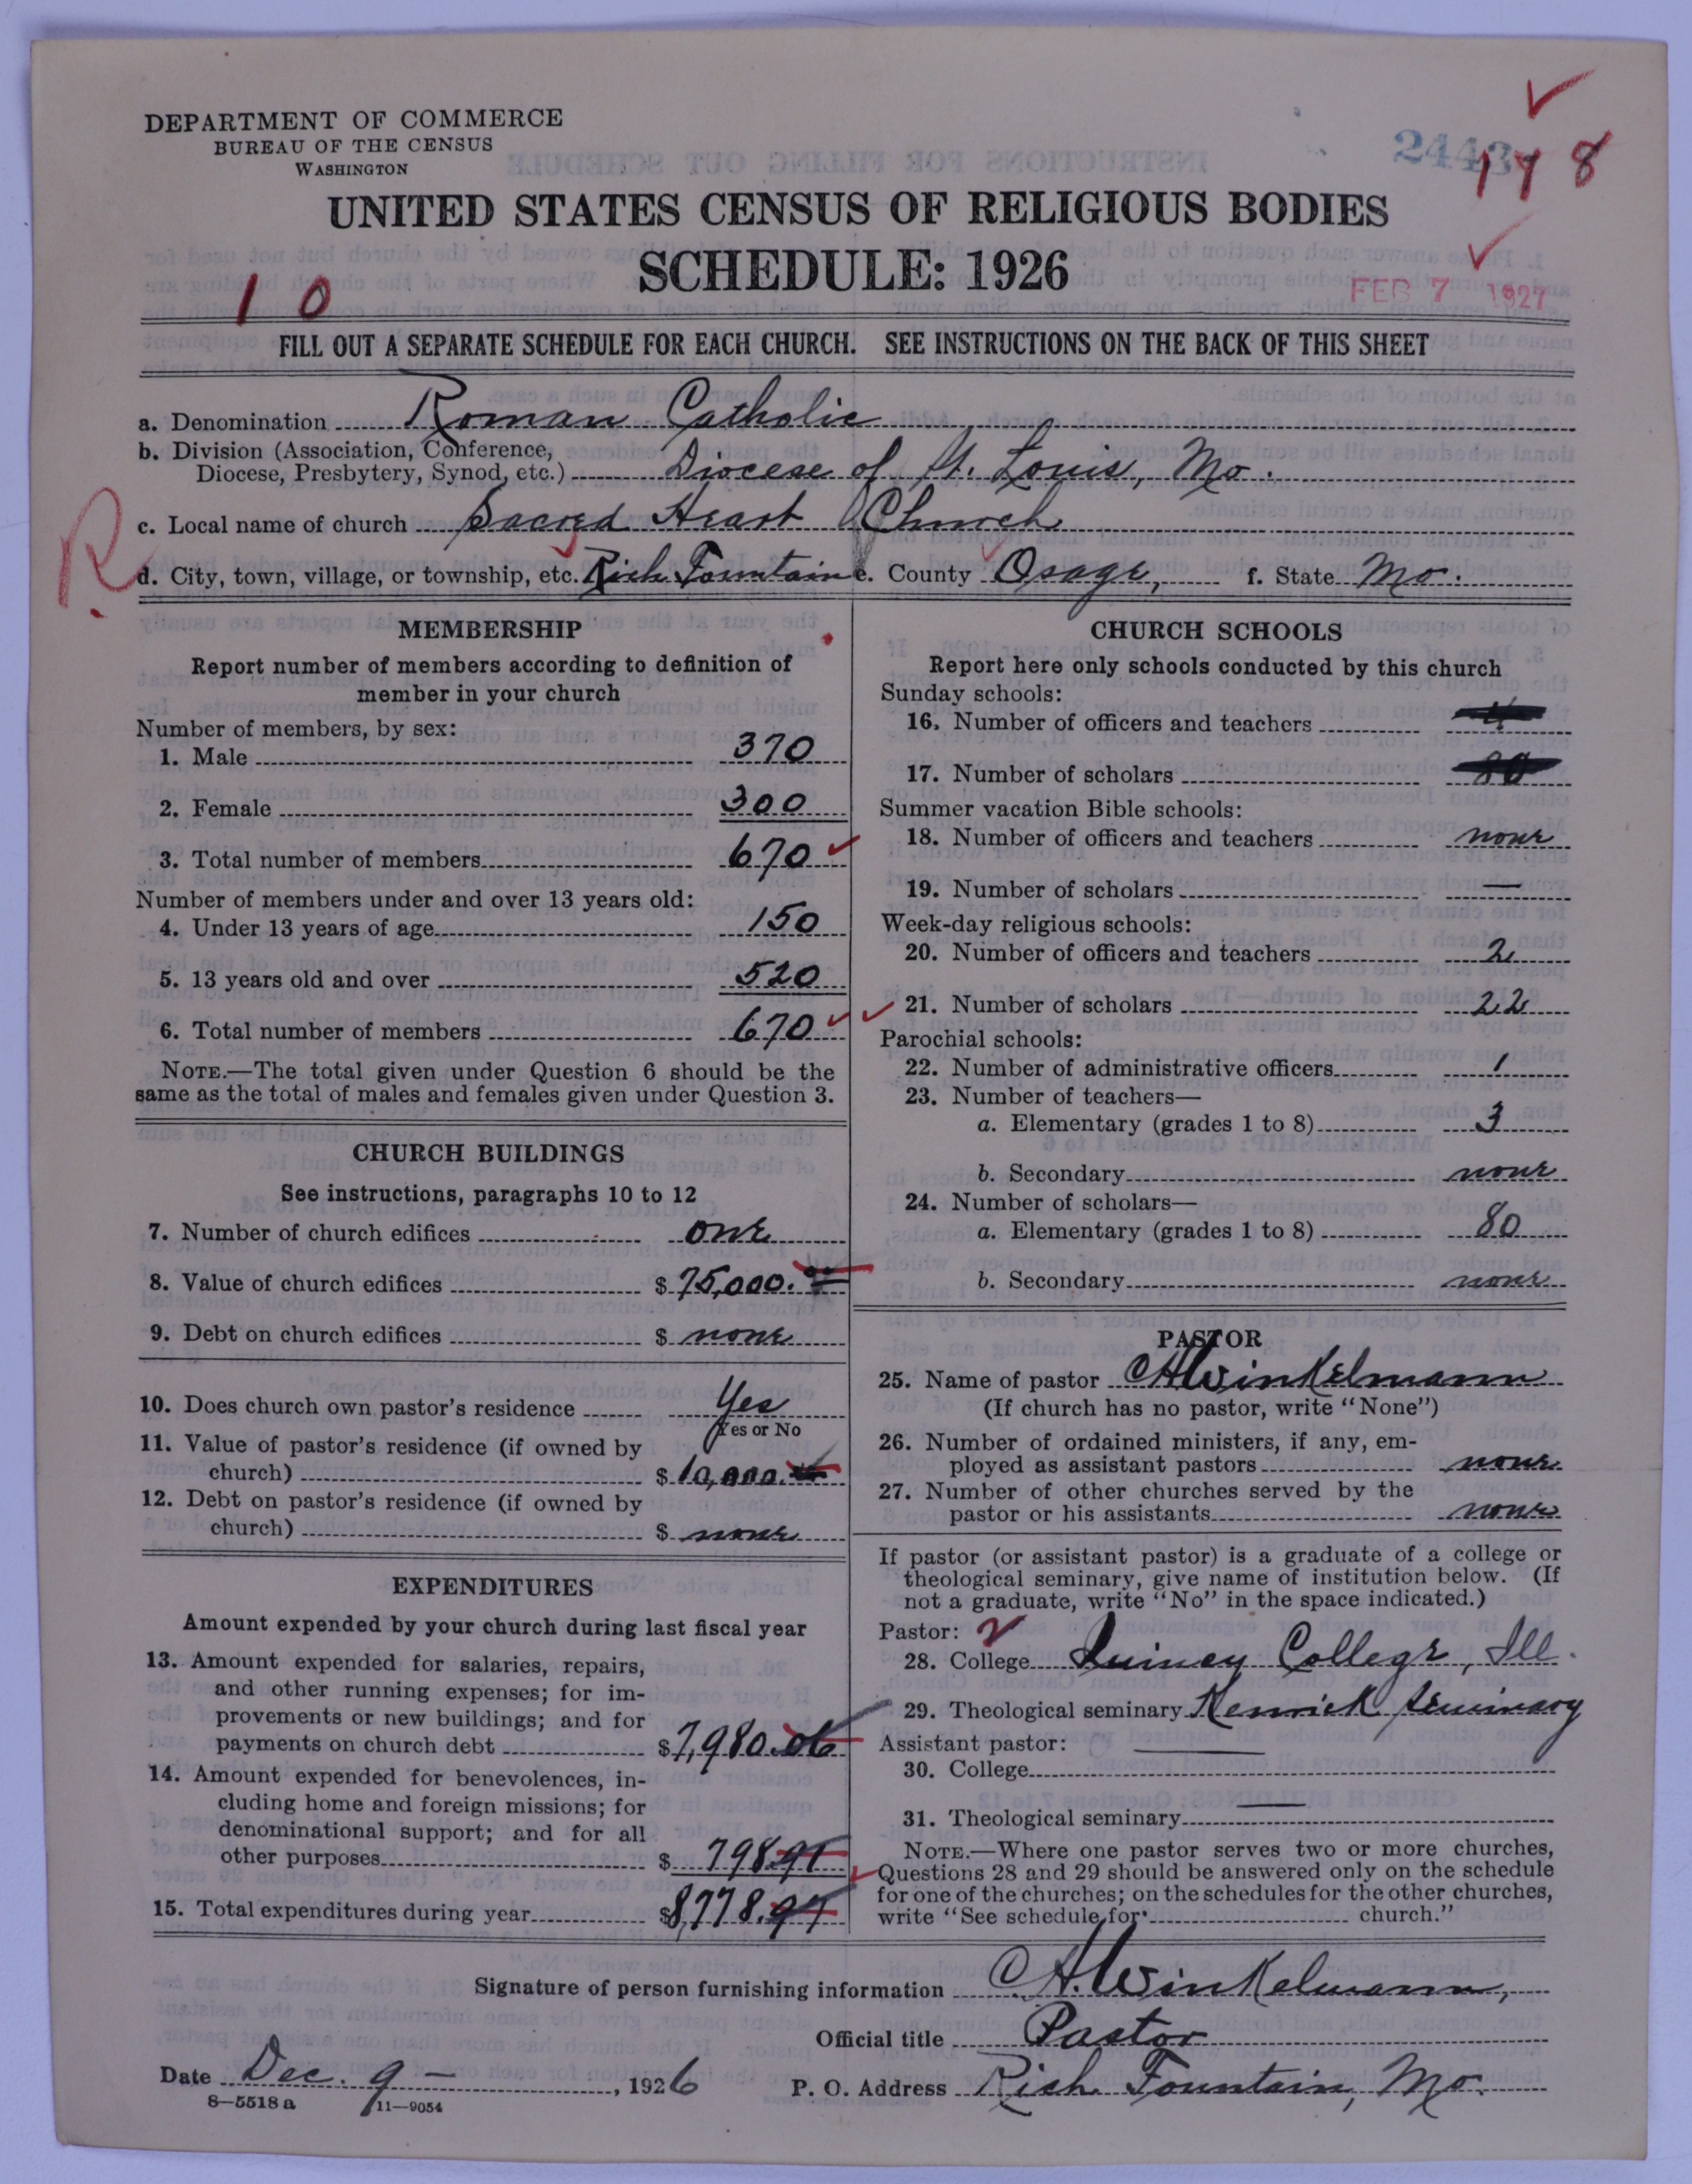 DEPARTMENT OF COMMERCE
BUREAU OF THE CENSUS
WASHINGTON
2443
178
UNITED STATES CENSUS OF RELIGIOUS BODIES
SCHEDULE: 1926
10
FEB 7 1927
FILL OUT A SEPARATE SCHEDULE FOR EACH CHURCH. SEE INSTRUCTIONS ON THE BACK OF THIS SHEET
a. Denomination Roman Catholic
b. Division (Association, Conference,
Diocese, Presbytery, Synod, etc.) Diocese of St. Louis, Mo.
c. Local name of church Sacred Heart Church
R
d. City, town, village, or township, etc. Rich Fountain e. County Osage, f. State Mo.
MEMBERSHIP
Report number of members according to definition of
member in your church
Number of members, by sex:
1. Male 370
2. Female 300
3. Total number of members 670
Number of members under and over 13 years old:
4. Under 13 years of age 150
5. 13 years old and over 520
6. Total number of members 670
NOTE.—The total given under Question 6 should be the
same as the total of males and females given under Question 3.
CHURCH BUILDINGS
See instructions, paragraphs 10 to 12
7. Number of church edifices one
8. Value of church edifices $ 75,000.00
9. Debt on church edifices $ none
10. Does church own pastor's residence Yes
Yes or No
11. Value of pastor's residence (if owned by
church) $ 10,000.
12. Debt on pastor's residence (if owned by
church) $ none
EXPENDITURES
Amount expended by your church during last fiscal year
13. Amount expended for salaries, repairs,
and other running expenses; for im-
provements or new buildings; and for
payments on church debt $ 7,980.06
14. Amount expended for benevolences, in-
cluding home and foreign missions; for
denominational support; and for all
other purposes $ 798.91
15. Total expenditures during year $ 8,778.97
CHURCH SCHOOLS
Report here only schools conducted by this church
Sunday schools:
16. Number of officers and teachers
17. Number of scholars 80
Summer vacation Bible schools:
18. Number of officers and teachers none
19. Number of scholars —
Week-day religious schools:
20. Number of officers and teachers 2
21. Number of scholars 22
Parochial schools:
22. Number of administrative officers 1
23. Number of teachers—
a. Elementary (grades 1 to 8) 3
b. Secondary none
24. Number of scholars—
a. Elementary (grades 1 to 8) 80
b. Secondary none
PASTOR
25. Name of pastor CHWinkelmann
(If church has no pastor, write "None")
26. Number of ordained ministers, if any, em-
ployed as assistant pastors none
27. Number of other churches served by the
pastor or his assistants none
If pastor (or assistant pastor) is a graduate of a college or
theological seminary, give name of institution below. (If
not a graduate, write "No" in the space indicated.)
Pastor:
28. College Quincy College, Ill.
29. Theological seminary Kenrick Seminary
Assistant pastor: —
30. College
31. Theological seminary —
NOTE.—Where one pastor serves two or more churches,
Questions 28 and 29 should be answered only on the schedule
for one of the churches; on the schedules for the other churches,
write "See schedule for church."
Signature of person furnishing information CH.Winkelmann,
Official title Pastor
Date Dec. 9 – , 1926 P. O. Address Rich Fountain, Mo.
8—5518 a 11—9054